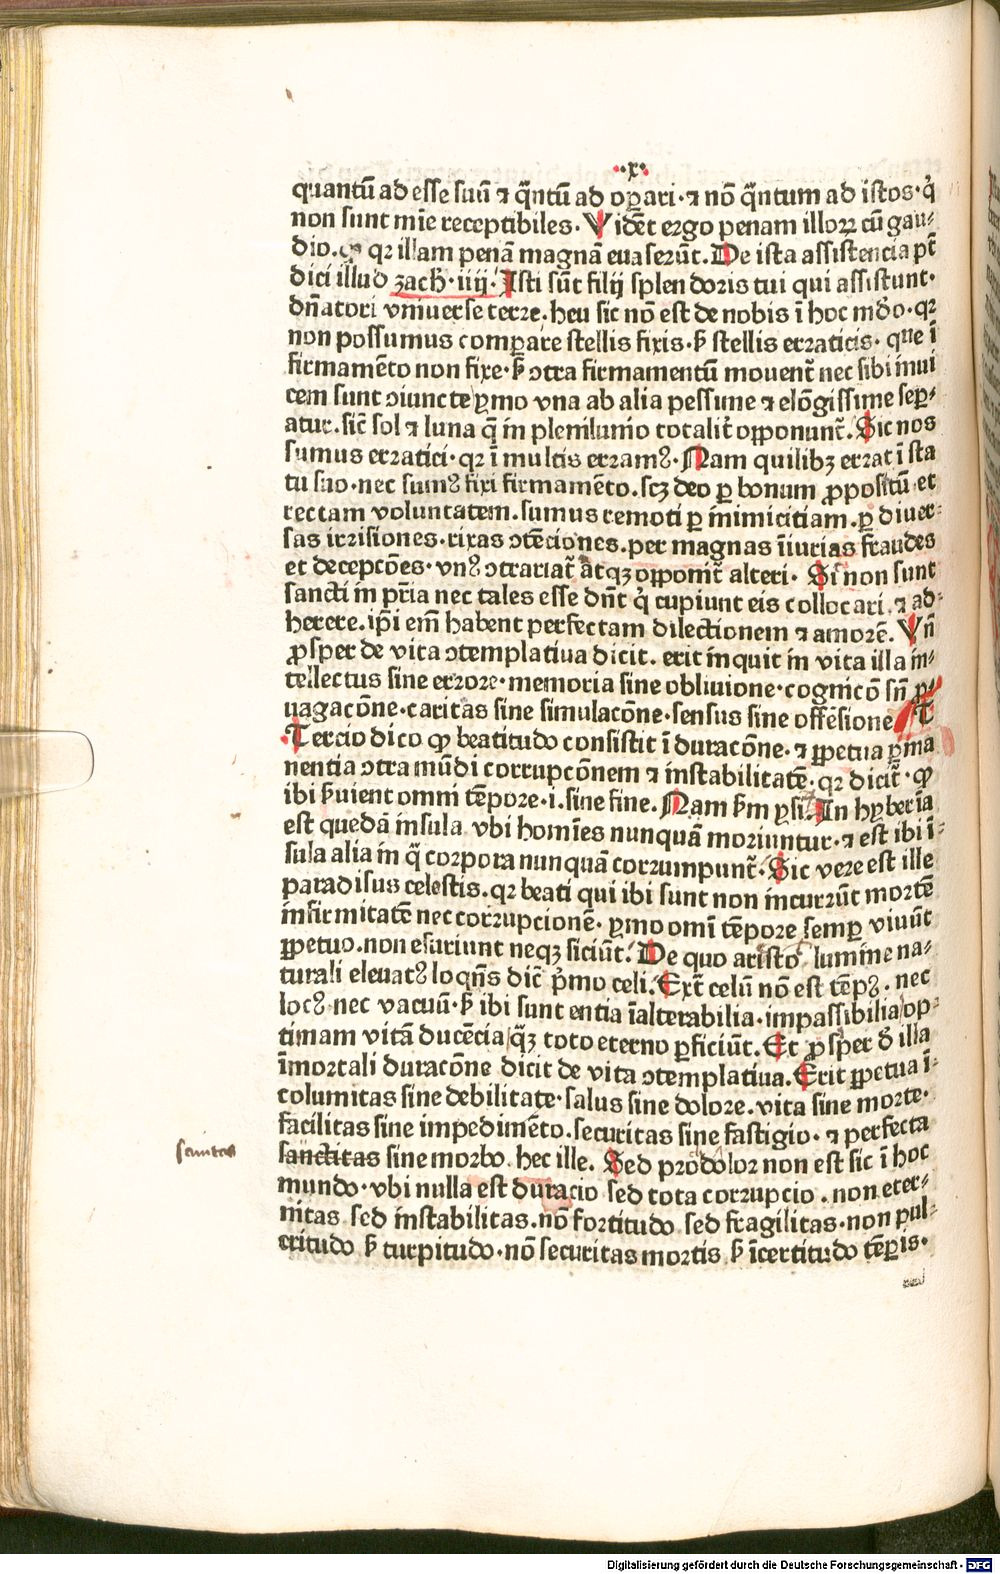 ·x·
quantū ad esse suū ⁊ q̄ntū ad oꝑari·⁊ nō q̄ntum ad istos·q̇
non sunt mīe receptibiles. Vidēt ergo penam illoꝝ cū gau⸗
dio. qꝛ illam penā magnā euaserūt. De ista assistencia pt̄
dici illud zach·iiij· Isti sūt filij splendoris tui qui assistunt·
dn̄atori vniuerse terre. heu sic nō est de nobis ī hoc mūdo·qꝛ
non possumus comparare stellis fixis·ẜ stellis erraticis· que ī
firmamēto non fixe·ẜ ↄtra firmamentū mouent̄ nec sibi inui
cem sunt ↄiuncte ymo vna ab alia pessime ⁊ elōgissime seꝑ⸗
atur. sic̄ sol ⁊ luna q̄ in plenilunio totalit̄ opponunt̄. Sic nos
sumus erratici·qꝛ ī multis erramꝰ. Nam quilibꝫ errat ī sta
tu suo·nec sumꝰ fixi firmamēto. scꝫ deo ꝑ bonum ꝓpositū et
rectam voluntatem. sumus remoti ꝑ inimicitiam. ꝑ diuer⸗
sas irrisiones·rixas ↄtēciones. per magnas īiurias fraudes
et decepcōes· vnꝰ ↄtrariat̄ atqꝫ opponit̄ alteri· Si non sunt
sancti in pr̄ia nec tales esse dn̄t q̇ cupiunt eis collocari. ⁊ ad⸗
herere. ip̄i em̄ habent perfectam dilectionem ⁊ amorē. Vn̄
ꝓsper de vita ↄtemplatiua dicit. erit inquit in vita illa in⸗
tellectus sine errore·memoria sine obliuione·cognicō sn̄ p⸗
uagacōne·caritas sine simulacōne·sensus sine offēsione T
Tercio dico ꝙ beatitudo consistit ī duracōne·⁊ ꝑpetua ꝑma
nentia ↄtra mūdi corrupcōnem ⁊ instabilitatē·qꝛ dicit̄·ꝙ
ibi ẜuient omni tēpore·i. sine fine. Nam ẜm ysi. In hyberīa
est quedā insula vbi homīes nunquā moriuntur·⁊ est ibi ī⸗
sula alia in q̄ corpora nunquā corrumpunt̄. Sic vere est ille
paradisus celestis. qꝛ beati qui ibi sunt non incurrūt mortē
infirmitatē nec corrupcionē· ymo omī tēpore semꝑ viuūt
ꝑpetuo. non esuriunt neqꝫ siciūt. De quo aristo lumine na⸗
turali eleuatꝰ loqn̄s dic̄ p̄mo celi. Ext̄ celū nō est tēpꝰ· nec
locꝰ nec vacuū·ẜ ibi sunt entia īalterabilia·impassibilia op⸗
timam vitā ducēcia q̄ꝫ toto eterno ꝑficiūt. Et ꝓsper ō illa
īmortali duracōne dicit de vita ↄtemplatiua. Erit ꝑpetua ī⸗
columitas sine debilitate·salus sine dolore. vita sine morte·
facilitas sine impedimēto. securitas sine fastigio·⁊ perfecta
sanctitas sine morbo. hec ille. Sed prodolor non est sic ī hoc
sanitas
mundo·vbi nulla est duracio sed tota corrupcio. non eter⸗
nitas sed instabilitas. nō fortitudo sed fragilitas·non pul⸗
critudo ẜ turpitudo·nō securitas mortis ẜ īcertitudo tēꝑis·
Digitalisierung gefördert durch die Deutsche Forschungsgemeinschaft - DFG